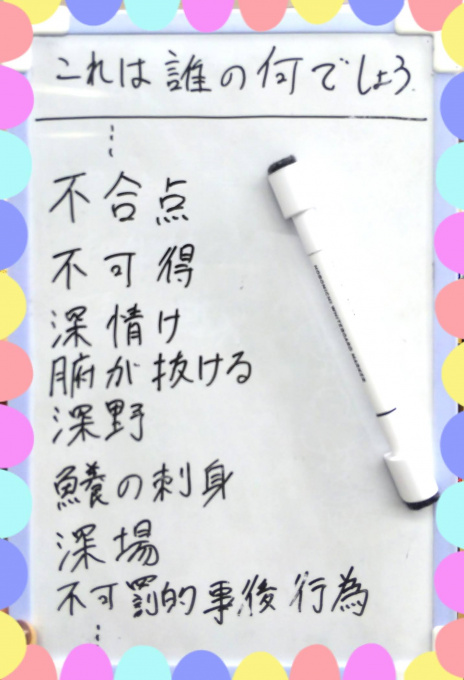 これは誰の何でしょう
⋮
不合点
不可得
深情け
腑が抜ける
深野
鱶の刺身
深場
不可罰的事後行為
⋮